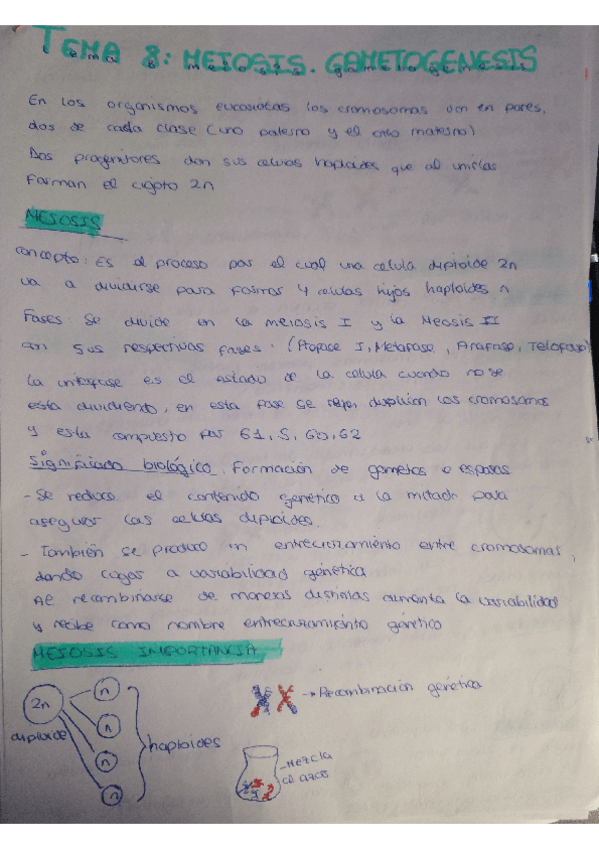 TEMA 8: MEIOSIS. GAMETOGENESIS
En los organismos eucariotas los cromosomas van en pares,
dos de cada clase (uno paterno y el otro materno)
Dos progenitores dan sus celulas haploides que al unirlas
Forman el cigoto 2n
MEIOSIS
concepto: Es el proceso por el cual una celula diploide 2n
va a dividirse para formar 4 celulas hijos haploides n
Fases: Se divide en la meiosis I y la Meosis II
con sus respectivas fases. (Profase I, Metafase, Anafase, Telofase)
La interfase es el estado de la celula cuando no se
esta dividiento, en esta fase se duplican los cromosomas
y esta compuesto por G1, S, G2
Significado biológico. Formación de gametos o esporas
- Se reduce el contenido genetico a la mitad para
asegurar las celulas diploides.
- También se produce un entrecruzamiento entre cromosomas,
dando lugar a variabilidad génetica
Al recombinarse de maneras distintas aumenta la variabilidad
y recibe como nombre entrecruzamiento génetico
MEIOSIS IMPORTANCIA
2n
diploide
n
n
n
n
haploides
→ Recombinación genética
- Mezcla
al azar